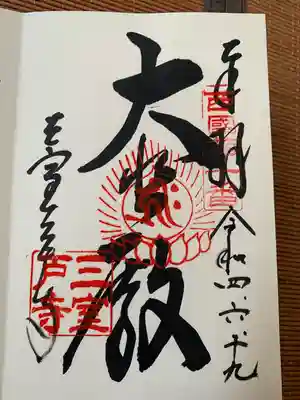 奉拝 令和四・六・十九
西国十番
大悲殿
三室戸寺
三室戸寺